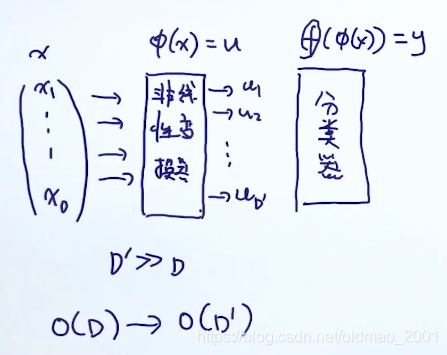 x
φ(x) = u
f(φ(x)) = y
x₁
⋮
x_D
非线
性变
换
u₁
u₂
⋮
u_D'
分
类
器
D' ≫ D
O(D) → O(D')
https://blog.csdn.net/oldmao_2001